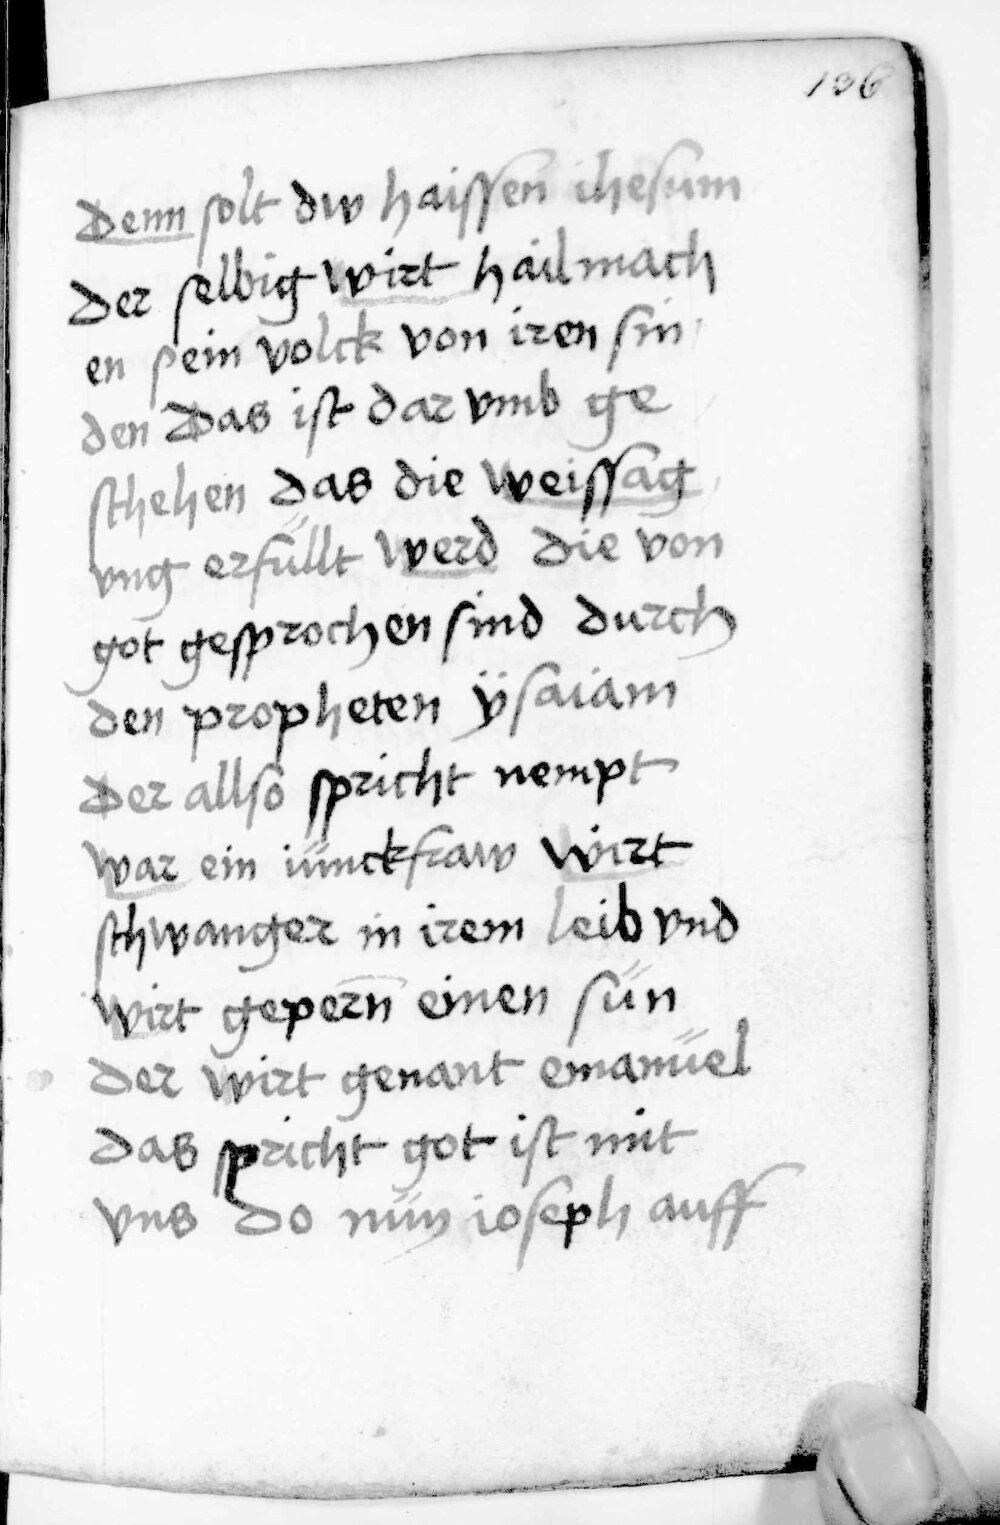 136
Denn solt dw haissen ihesum
der selbig wirt hailmach
en sein volck von iren sin
den Das ist dar vmb ge
schehen das die weissag
vng erfüllt werd die von
got gesprochen sind durch
den propheten ÿsaiam
Der allso spricht nempt
war ein iünckfraw wirt
schwanger in irem leib vnd
wirt gepern̄ einen sün
der wirt genant emanüel
das spricht got ist mit
vns Do nün ioseph auff